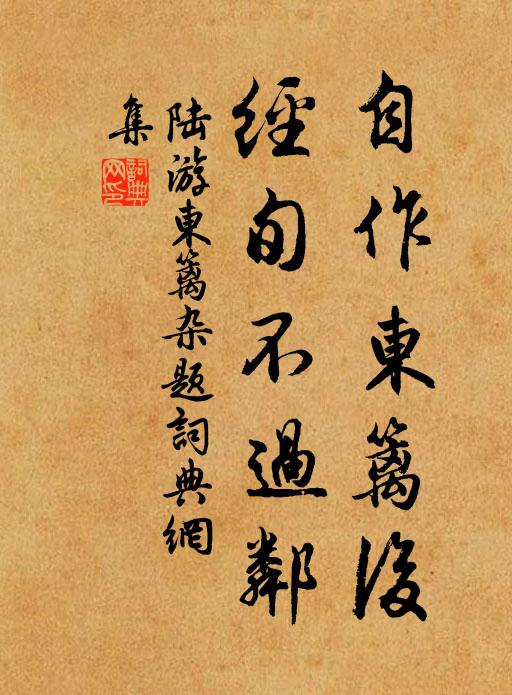 自作東籬後
經旬不過鄰
陸游東籬杂题詞典網
集
詞典
网印